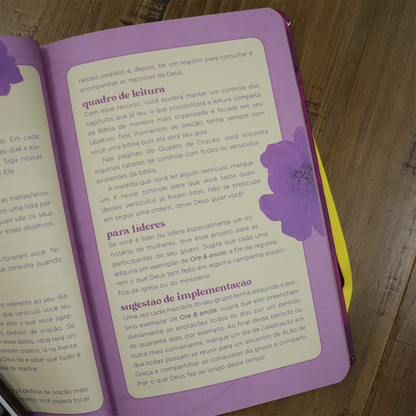 . Em cada
es que a aju-
Siga nossas
e Ele.
as metas/alvos
m uma lista por
quais são os seus
r esses objetivos
tocaram você. Ter
ous consulta quando
nos referente ao seu dia
que versículo você leu
, peça o que você agra-
pedidos de oração. Se
r esses dados, você terá um
também poderá, lá na frente,
e Deus fez e saber que tudo é
se pedidos de oração mais
você poderá focar
nesses pedidos e, depois, ter um registro para consultar e
acompanhar as repostas de Deus.
quadro de leitura
Com esse recurso, você poderá manter um controle dos
capítulos que já leu, o que possibilitará a leitura completa
da Bíblia de maneira mais organizada e focada em seu
objetivo. Nos momentos de oração, tenha sempre com
você uma bíblia pois ela será seu guia.
Nas páginas do Quadro de Oração, você encontra
algumas tabelas de controle com todos os versículos
existentes da bíblia.
A medida que você ler algum versículo, marque
um X nesse controle para que você saiba quais
desses versículos já foram lidos. Não se preocupe
em seguir uma ordem, deixe Deus guiar você!
para líderes
Se você é líder ou lidera especialmente um mi-
nistério de mulheres, leve esse projeto para as
participantes do seu grupo. Sugira que cada uma
adquira um exemplar de Ore & anote, a fim de registra-
rem o que Deus tem feito em alguma campanha especí-
fica da igreja ou do ministério.
sugestão de implementação
Uma vez cada membro do seu grupo tenha adquirido o pró-
prio exemplar de Ore & anote, sugira que elas preencham
diariamente as anotações todos os dias por um período
de quarenta dias, por exemplo. Ao final desse período ou
outro mais conveniente, marque um dia de Celebração em
que todas possam se reunir para um encontro de Ação de
Graça e compartilhar as conquistas do grupo e comparti-
lhar o que Deus fez ao longo desse tempo.